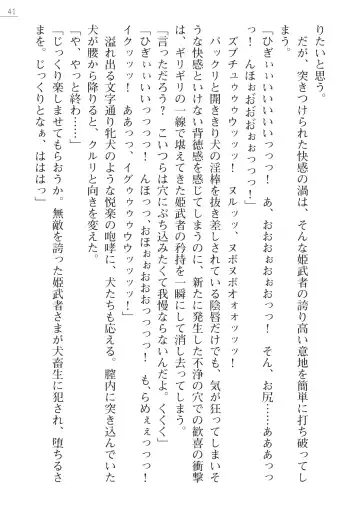 41
りたいと思う。
　だが、突きつけられた快感の渦は、そんな姫武者の誇り高い意地を簡単に打ち破ってし
まう。
「ひぎぃぃいいいいいっっっ！　あ、おおおぉぉおぉおっっ！　そん、お尻……あああっっ
っ！　んほぉおおおおぉぉっっっ！」
　ズブチュゥゥゥウッッッ！　ヌルッッ、ヌボヌボオォォッッッ！
　バックリと開ききり犬の淫棒を抜き差しされている陰唇だけでも、気が狂ってしまいそ
うな快感といけない背徳感を感じてしまうのに、新たに発生した不浄の穴での歓喜の衝撃
は、ギリギリの一線で堪えてきた姫武者の矜持を一瞬にして消し去ってしまう。
「言っただろう？　こいつらは穴にぶち込みたくて我慢ならないんだよ。くくく」
「ひぎぃぃいいっっっっ！　んほっっ、おほぉぉおおおっっっっ！　も、らめぇぇっっっ！
イクッッッ！　ああっっ、イグゥゥウウウウッッッ！」
　溢れ出る文字通り牝犬のような悦楽の咆哮に、犬たちも応える。膣内に突き込んでいた
犬が腰から降りると、クルリと向きを変えた。
「や、やっと終わ……」
「じっくり楽しませてもらおうか。無敵を誇った姫武者さまが犬畜生に犯され、堕ちるさ
まを。じっくりとなぁ、はははっ」